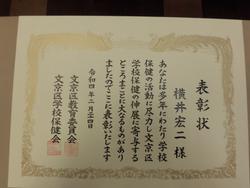 表彰状
横井宏二 様
あなたは多年にわたり学校
保健の活動に尽力し文京区
学校保健の伸展に寄与する
ところまことに大なるものがあり
ましたのでここに表彰いたします
令和四年二月二十四日
文京区教育委員会
文京区学校保健会